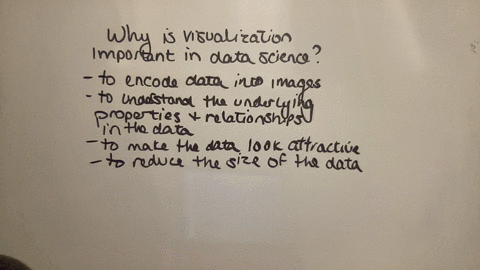 Why is visualization
important in data science?
- to encode data into images
- to understand the underlying
properties + relationships
in the data
- to make the data look attractive
- to reduce the size of the data